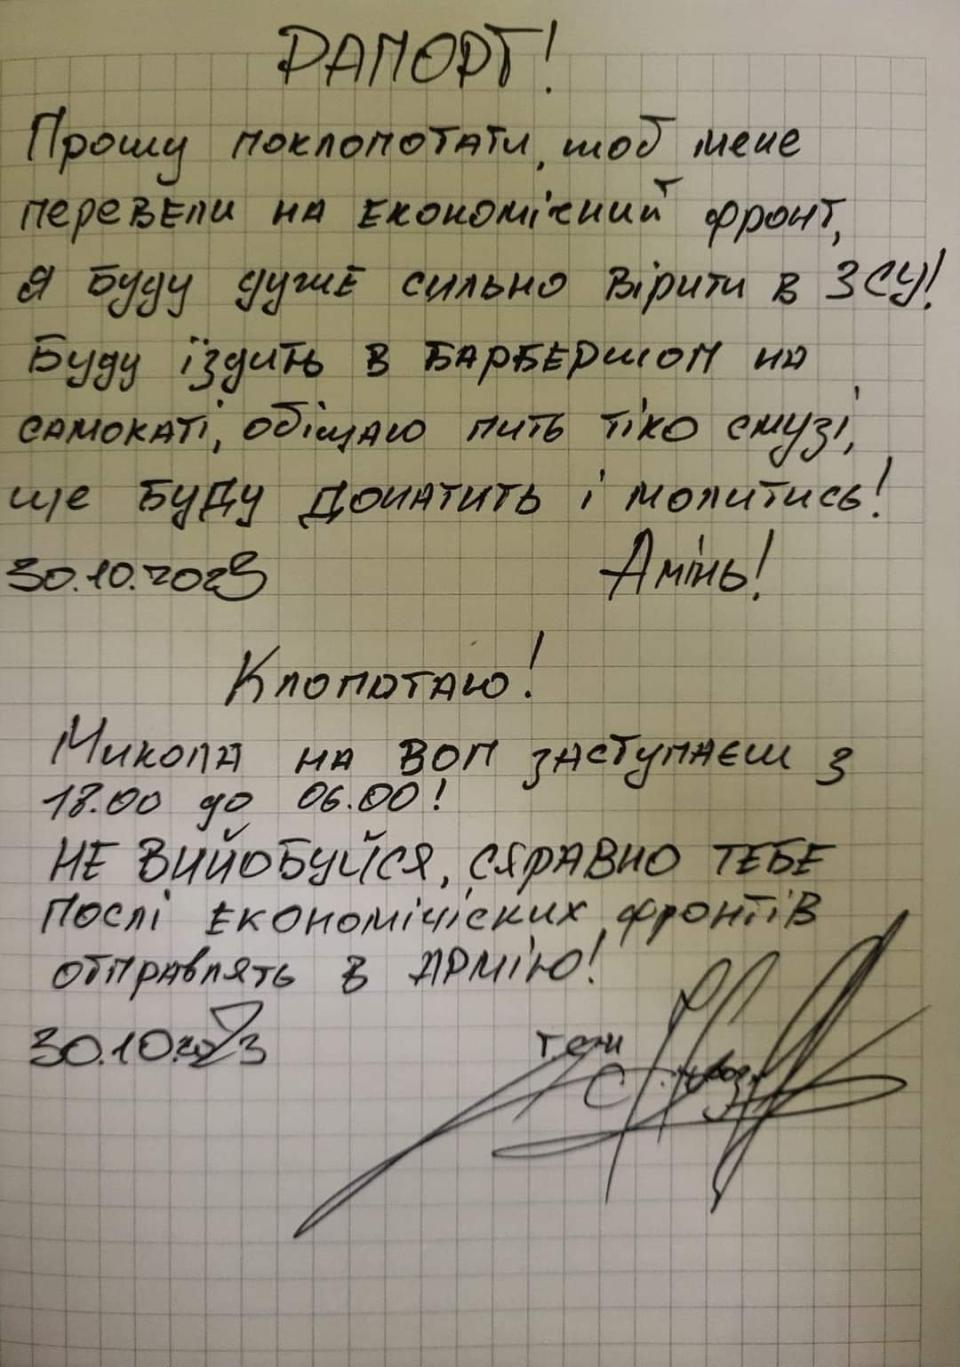 РАПОРТ!
Прошу поклопотати, щоб мене
перевели на економічний фронт,
я буду дуже сильно вірити в ЗСУ!
Буду їздить в БАРБЕРШОП на
самокаті, обіщаю пить тіко смузі,
ще буду донатить і молитись!
30.10.2023 Амінь!
Клопотаю!
Микола на ВОП заступаєш з
18.00 до 06.00!
НЕ ВИЙОБУЙСЯ, СЯРАВНО ТЕБЕ
послі економічіских фронтів
отправлять в АРМІЮ!
30.10.2023